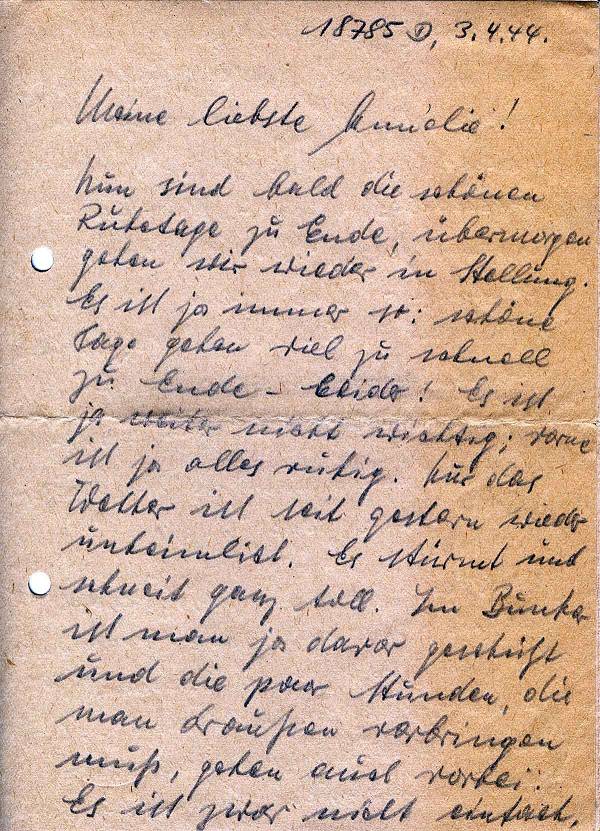 18785 D, 3.4.44.
Meine liebste Annelie!
Nun sind bald die schönen
Ruhetage zu Ende, übermorgen
gehen wir wieder in Stellung.
Es ist ja immer so: schöne
Tage gehen viel zu schnell
zu Ende - leider! Es ist
ja weiter nicht wichtig; vorne
ist ja alles ruhig. Nur das
Wetter ist seit gestern wieder
unheimlich. Es stürmt und
schneit ganz toll. Im Bunker
ist man ja davor geschützt
und die paar Stunden, die
man draußen verbringen
muß, gehen auch vorbei.
Es ist zwar nicht einfach,